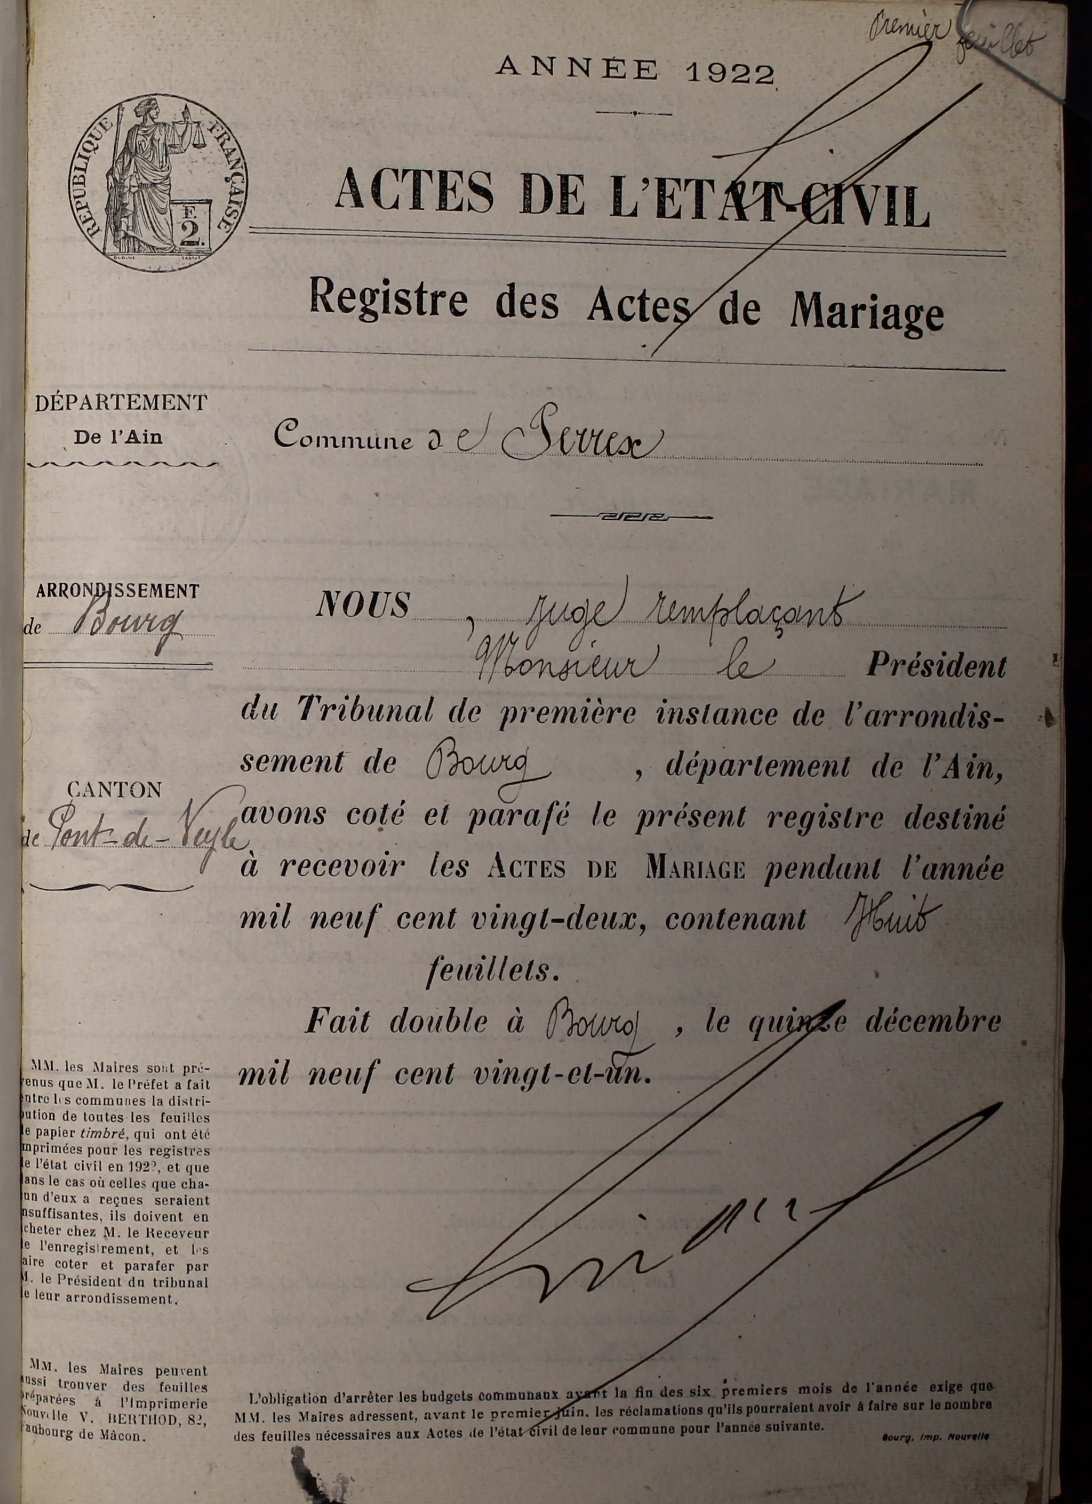 Premier feuillet
ANNÉE 1922
RÉPUBLIQUE FRANÇAISE
F
2.
ACTES DE L'ETAT-CIVIL
Registre des Actes de Mariage
DÉPARTEMENT
De l'Ain
Commune de Perrex
ARRONDISSEMENT
de Bourg
NOUS , Juge remplaçant
Monsieur le Président
du Tribunal de première instance de l'arrondis-
sement de Bourg , département de l'Ain,
CANTON
de Pont-de-Veyle
avons coté et parafé le présent registre destiné
à recevoir les ACTES DE MARIAGE pendant l'année
mil neuf cent vingt-deux, contenant Huit
feuillets.
Fait double à Bourg , le quinze décembre
mil neuf cent vingt-et-un.
MM. les Maires sont pré-
enus que M. le Préfet a fait
ntre les communes la distri-
ution de toutes les feuilles
e papier timbré, qui ont été
mprimées pour les registres
e l'état civil en 1922, et que
ans le cas où celles que cha-
un d'eux a reçues seraient
nsuffisantes, ils doivent en
cheter chez M. le Receveur
e l'enregistrement, et les
aire coter et parafer par
M. le Président du tribunal
e leur arrondissement.
MM. les Maires peuvent
ussi trouver des feuilles
préparées à l'Imprimerie
Nouvelle V. BERTHOD, 82,
aubourg de Mâcon.
L'obligation d'arrêter les budgets communaux avant la fin des six premiers mois de l'année exige que
MM. les Maires adressent, avant le premier juin, les réclamations qu'ils pourraient avoir à faire sur le nombre
des feuilles nécessaires aux Actes de l'état civil de leur commune pour l'année suivante.
Bourg, Imp. Nouvelle